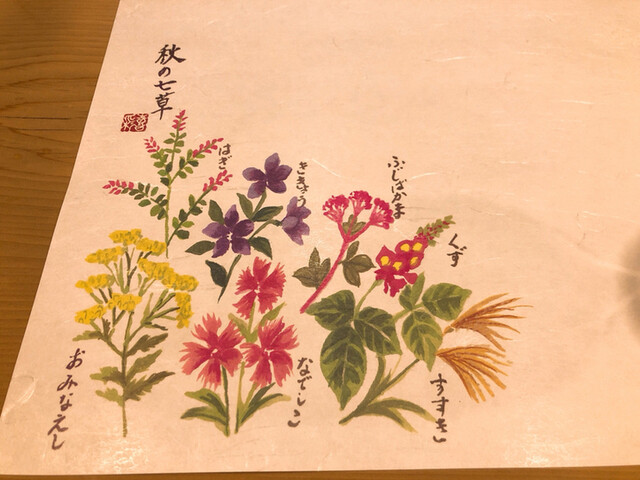 秋の七草
はぎ
ききょう
ふじばかま
くず
おみなえし
なでしこ
すすき